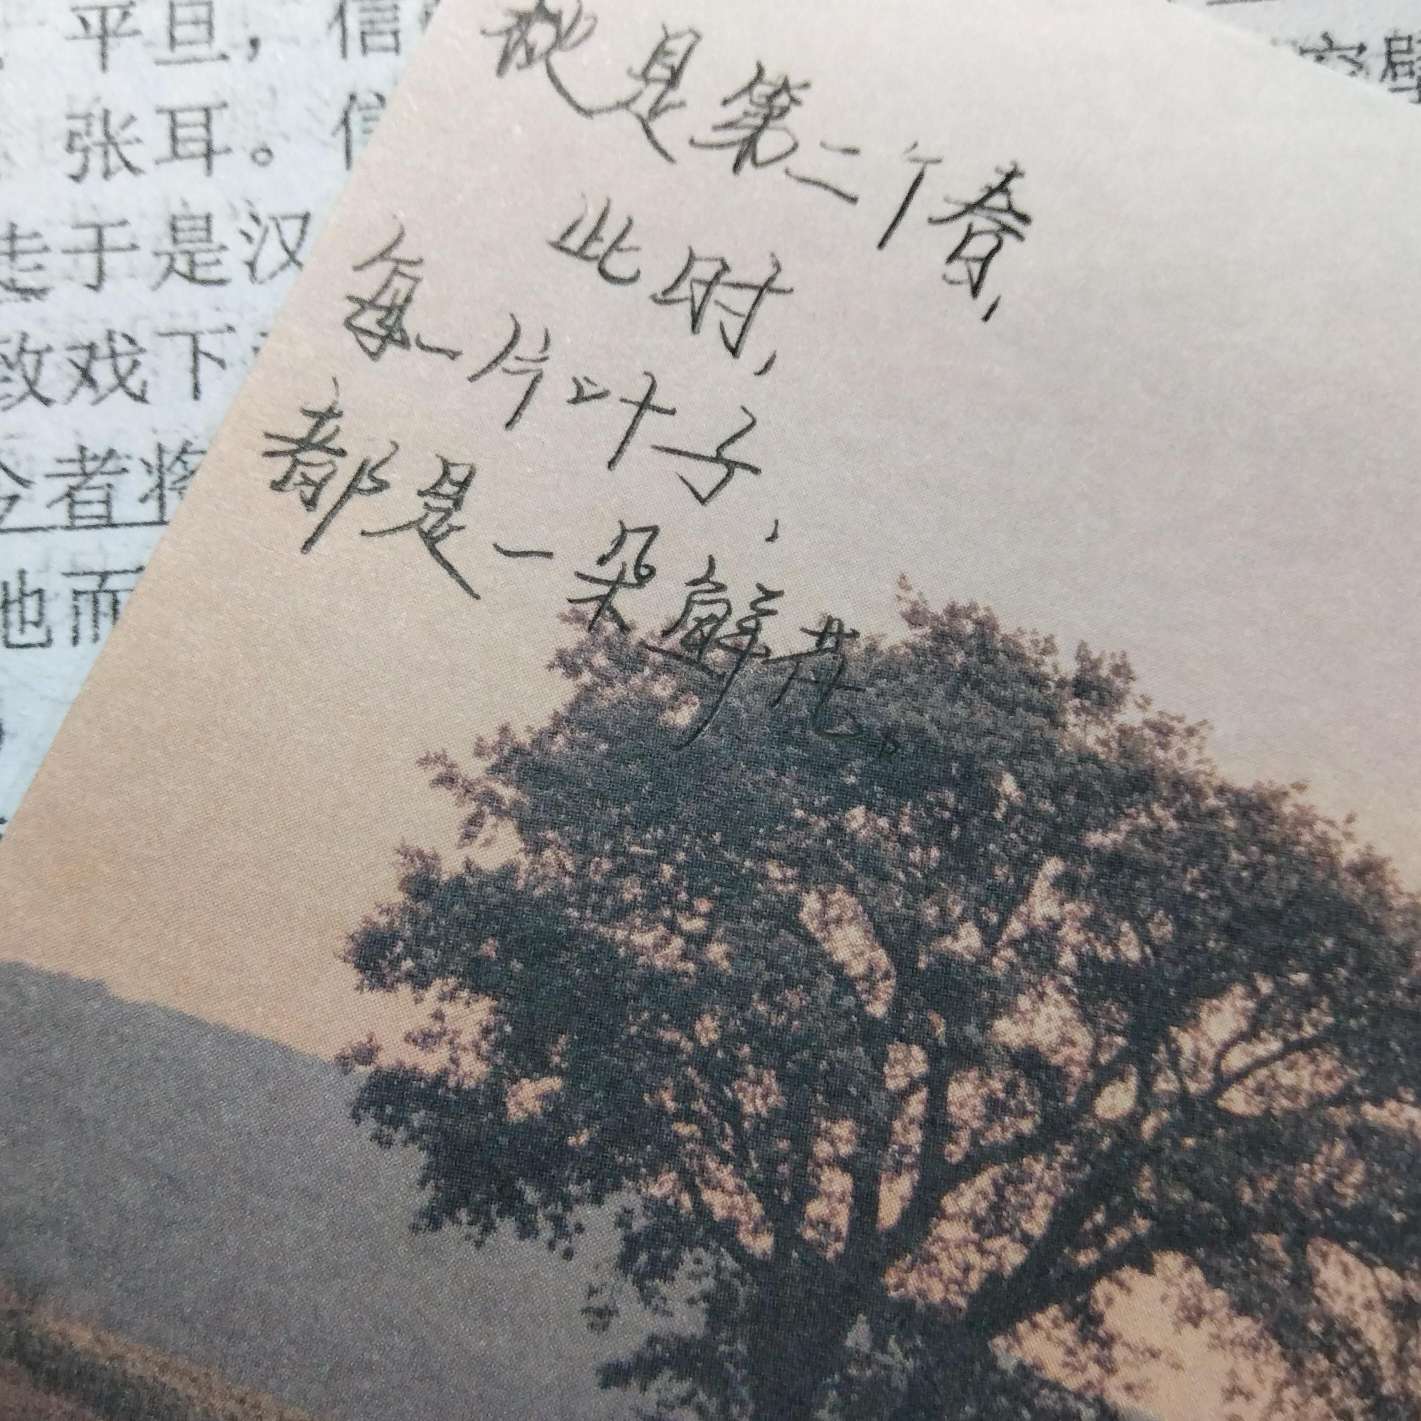 秋是第二个春,
此时,
每一片叶子,
都是一朵鲜花。
平旦,信
张耳。信
走于是汉
致戏下
令者将
地而
壁